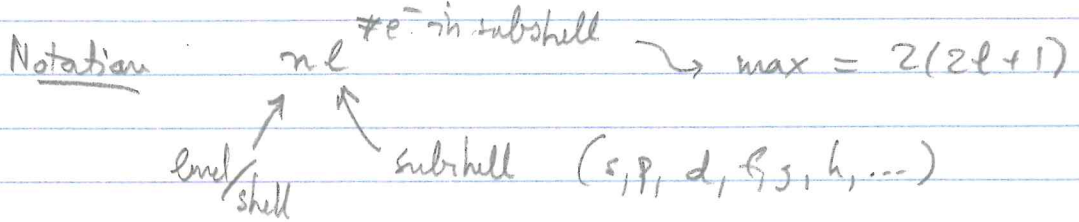 Notation nl #e⁻ in subshell → max = 2(2l+1)
level/shell subshell (s, p, d, f, g, h, ...)